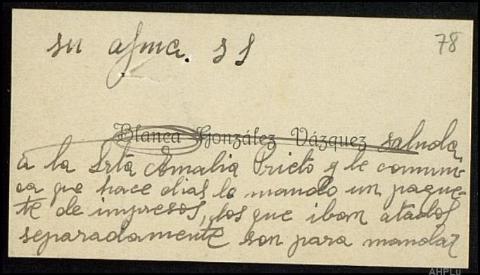 su afma. s s
78
Blanca González Vázquez saluda
a la Srta Amalia Prieto y le comuni
ca que hace dias le mando un paque
te de impresos, los que iban atados
separadamente son para mandar
AHPLU